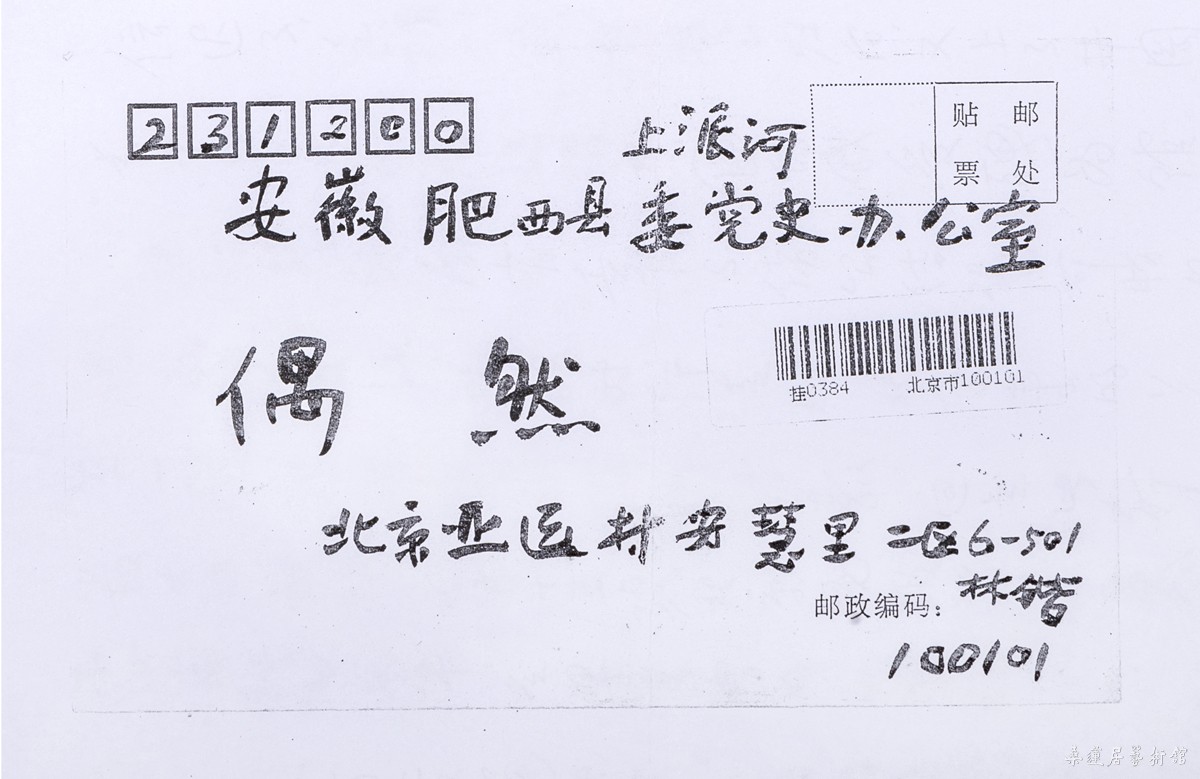 231200
上派河
贴 邮
票 处
安徽肥西县委党史办公室
挂0384 北京市100101
偶 然
北京亚运村安慧里二区6-501
林锴
邮政编码：
100101